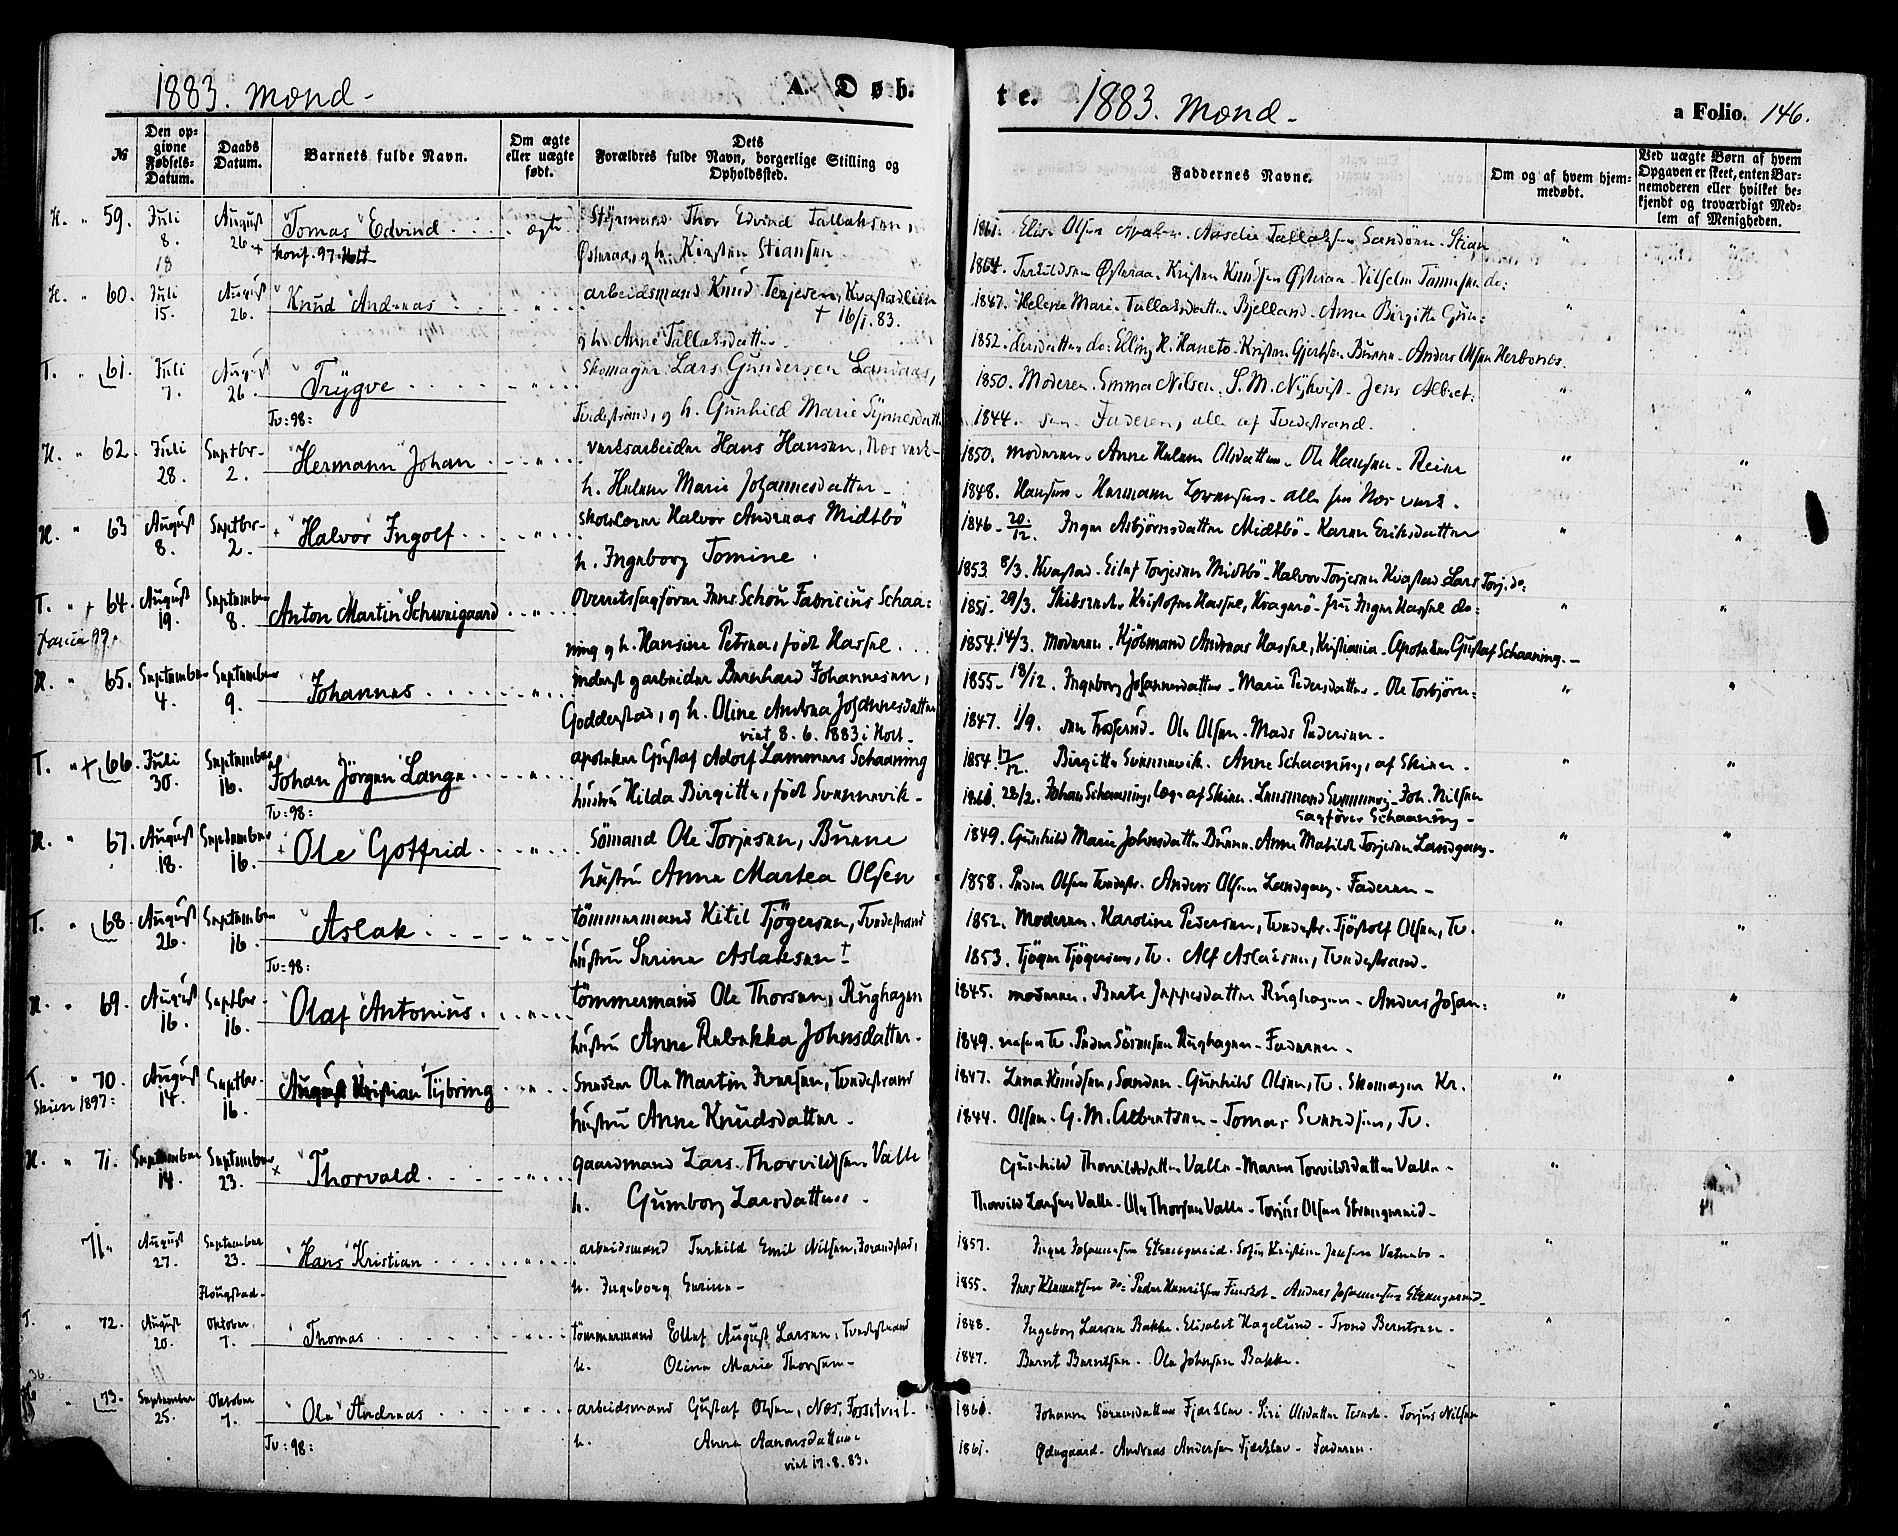 1883. Mænd.
A. Døb.
№
Den opgivne Fødsels-Datum.
Daabs Datum.
Barnets fulde Navn.
Om ægte eller uægte født.
Dets Forældres fulde Navn, borgerlige Stilling og Opholdssted.
H. " 59. Juli 8. August 26 "Tomas" Edvind ægte Styrmand Thor Edvind Tallaksen,
18 Konf. 97. Holt Østeraa, og h. Kirsten Stiansen
H. " 60. Juli 15. August 26. "Knud" Andreas " arbeidsmand Knud Terjesen, Kvastadlien
† 16/1. 83.
og h. Anne Tallaksdatter
T. " 61. Juli 7. August 26. "Trygve " Skomager Lars Gundersen Landaas,
Tv: 98: Tvedestrand, og h. Gunhild Marie
H. " 62. Juli 28. Septbr. 2. "Hermann" Johan " Verksarbeider Hans Hansen, Næs verk
h. Helene Marie Johannesdatter
H. " 63 August 8. Septbr. 2. "Halvor" Ingolf " Skolelærer Halvor Andreas Midtbö
h. Ingeborg Tomine.
T. " + 64. August 19. September 8. Anton "Martin" Schweigaard " Overretssagförer Jens Schöu Fabricius Schaa:
ning og h. Hansine Petrea, födt Hassel.
H. " 65. September 4. September 9. "Johannes " inderst g arbeider Bernhard Johannesen,
Godderstad, og h. Oline Andrea Johannesdatter
viet 8. 6. 1883 i Holt.
T. " + 66. Juli 30. September 16. Johan Jörgen "Lange " apoteker Gustaf Adolf Lammers Schaaning
Tv: 98: hustru Hilda Birgitte, födt Svennevik.
H. " 67. August 18. September 16. + Ole "Gotfrid " Sömand Ole Torjesen, Bunne
hustru Anne Martea Olsen
T. " 68. August 26. September 16. "Aslak " tömmermand Kitil Tjögersen, Tvedestrand
Tv: 98: hustru Serine Aslaksen †
H. " 69. August 16. Septbr. 16. "Olaf "Antonius " tömmermand Ole Thorsen, Rughagen
hustru Anne Rebekka Johnsdatter.
T. " 70. August 14. Septbr. 16. "August Kristian "Tybring " Snedker Ole Martin Iversen, Tvedestrand
Skien 1897: hustru Anne Knudsdatter.
H. " 71. September 14. September 23. × "Thorvald " gaardmand Lars Thorvildsen Valle
h. Gumborg Larsdatter.
71. August 27. September 23. "Hans" Kristian " arbeidsmand Terkild Emil Nilsen,
Flougstad h. Ingeborg Serine
T. " 72. August 20. Oktober 7. "Thomas " tömmermand Ellef August Larsen, Tvedestrand
h. Oline Marie Thorsen
" 73. September 25. Oktober 7. "Ole" Andreas " arbeidsmand Gustaf Olsen, Næs, Fosstveit.
Tv: 98: h. Anne Aanonsdatter
viet 17. 8. 83.
te. 1883. Mænd. a Folio. 146.
Faddernes Navne.
Om og af hvem hjemmedøbt.
Ved uægte Børn af hvem Opgaven er skeet, enten Barnemoderen eller hvilket bekjendt og troværdigt Medlem af Menigheden.
1861. Elise Olsen Amalie Tallaksen Sandöen. Stian
1864. Terkildsen Østeraa. Kristen Knudsen Østeraa. Vilhelm Tønnesen do:
1847. Helene Marie Tallaksdatter Bjelland. Anne Birgitte Gun:
1852. dersdatter do: Elling H. Haneto. Kristen Gjertsen Bunne. Anders Olsen
1850. Moderen. Emma Nilsen. S. M. Nykvist. Jens Albret:
1844. sen. Faderen, alle af Tvedestrand.
1850. Moderen. Anne Helene Olsdatter. Ole Hansen. Reier
1848. Hansen. Hermann Lorensen. alle fra Næs verk.
1846. 20/12. Inger Asbjörnsdatter Midtbö. Karen Eriksdatter
1853. 8/3. Kvastad. Eilef Torjesen Midtbö. Halvor Torjesen Kvastad. Lars Torj. do:
1851. 29/3. Skibsreder Kristofer Hassel, Kragerö. fru Inger Hassel do:
1854. 14/3. Moderen. Kjöbmand Andreas Hassel, Kristiania. Apoteker Gustaf Schaaning.
1855. 18/12. Ingeborg Johannesdatter. Marie Pedersdatter. Ole Torbjörn:
1847. 1/9. sen Ole Olsen. Mads Pedersen.
1854. 17/12. Birgitte Svennevik. Anne Schaaning, af Skien.
1860. 28/2. Johan Schaaning, læge af Skien. Lensmand Svennevig. Joh. Nilsen
Sagförer Schaaning
1849. Gunhild Marie Johnsdatter Bunne. Anne Matilde Torjesen Landgang.
1858. Peder Olsen Tvedestr. Anders Olsen Landgang. Faderen
1852. Moderen. Karoline Pedersen, Tvedestr. Tjöstolf Olsen, Tv.
1853. Tjöger Tjögersen, Tv. Alf Aslaksen, Tvedestrand.
1845. Moderen. Berte Jeppesdatter Rughagen. Anders Johan:
1849. nesen Tv. Peder Sörensen Rughagen. Faderen.
1847. Lena Knudsen, Sanden. Gunhild Olsen, Tv. Skomager Kr.
1844. Olsen. G. M. Albertsen. Tomas Svendsen, Tv.
Gunhild Thorvildsdatter Valle. Maren Torvildsdatter Valle.
Thorvild Larsen Valle. Ole Thorsen Valle. Torjus Olsen Strengereid
1857. Inger Johannesen Strengereid. Sofie Kristine Jensen Vatnebo.
1855. Jens Klemetsen do: Peder Henriksen Anders Johannesen Strengereid
1848. Ingeborg Larsen Bakke. Elisabet Hagelund. Trond Berntsen.
1847. Bernt Berntsen. Ole Johnsen Bakke.
1860. Johanne Sörensdatter Fjærklev. Siri Olsdatter Torjus Nilsen
1861. Ødegaard. Andreas Andersen Fjærklev. Faderen.